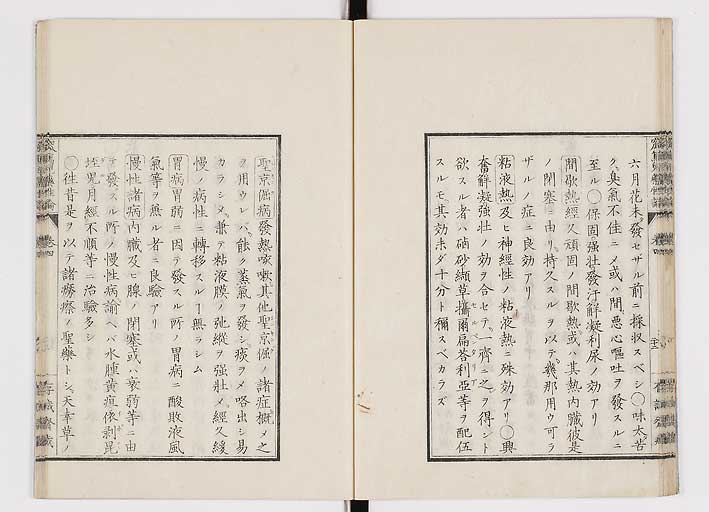 六月花未ダ發セザル前ニ採収スベシ○味太苦
ク臭氣不佳ニメ或ハ間悪心嘔吐ヲ發スルニ
至ル○保固強壮發汗解凝利尿ノ効アリ
間歇熱經久頑固ノ間歇熱或ハ其熱内臓彼是
ノ閉塞ニ由リ持久スルヲ以テ幾那用ウ可ラ
ザルノ症ニ良効アリ
粘液熱及ヒ神經性ノ粘液熱ニ殊効アリ○興
奮解凝強壮ノ効ヲ合セテ一齊ニ之ヲ得ント
欲スル者ハ硇砂纈草攝爾扁荅利亜等ヲ配伍
スルモ其効未ダ十分ト稱スベカラズ
聖京倔病發熱咳嗽其他聖京倔ノ諸症概メ之
ヲ用ウレバ能ク蒸氣ヲ發シ痰ヲメ咯出シ易
カラシメ兼テ粘液膜ノ弛縱ヲ強壮メ經久緩
慢ノ病性ニ轉移スルヿ無ラシム
胃病胃弱ニ因テ發スル所ノ胃病ニ酸敗液風
氣等ヲ無ル者ニ良驗アリ
慢性諸病内臓及ヒ腺ノ閉塞或ハ衰弱等ニ由
テ發スル所ノ慢性病諭ヘバ水腫黄疸依剥昆
垤兒月經不順等ニ治驗多シ
○徃昔是ヲ以テ諸癆瘵ノ聖藥トシ天幸草ノ